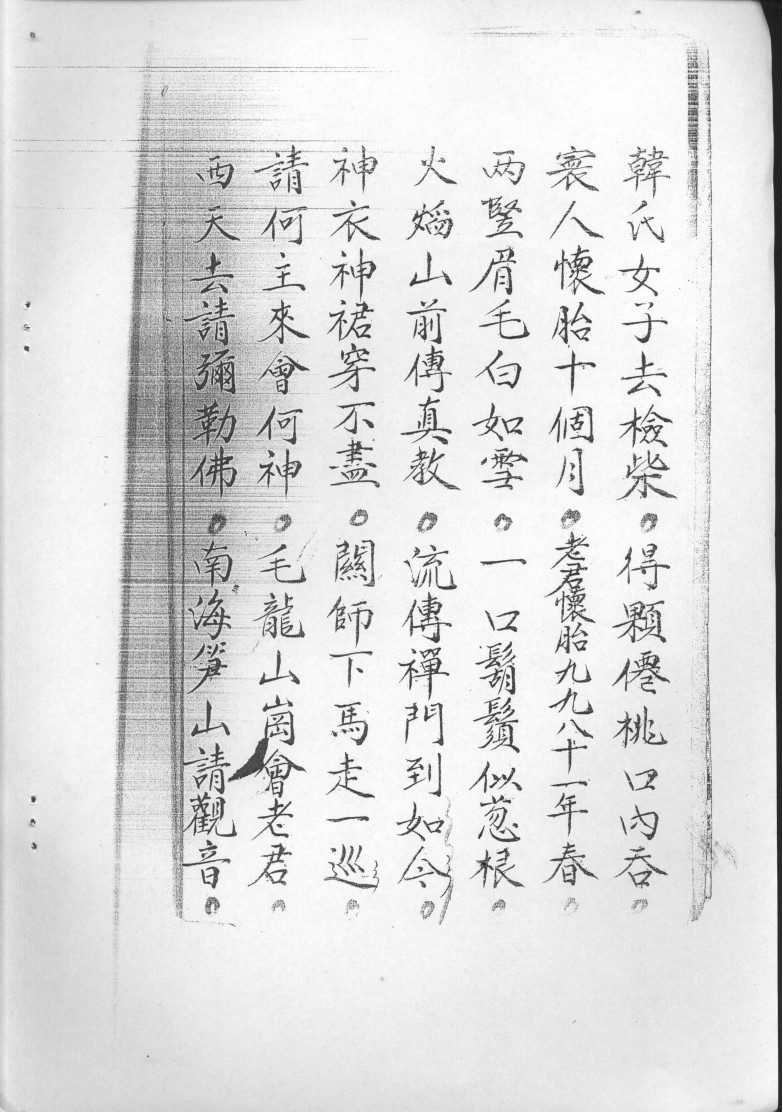 韓氏女子去檢柴○得顆僊桃口內吞○
寰人懷胎十個月○老君懷胎九九八十一年春○
两豎眉毛白如雪○一口鬍鬚似葱根○
火熖山前傳真教○流傳禪門到如今○
神衣神裙穿不盡○闗師下馬走一巡○
請何主來會何神○毛龍山崗會老君○
西天去請彌勒佛○南海山請觀音○